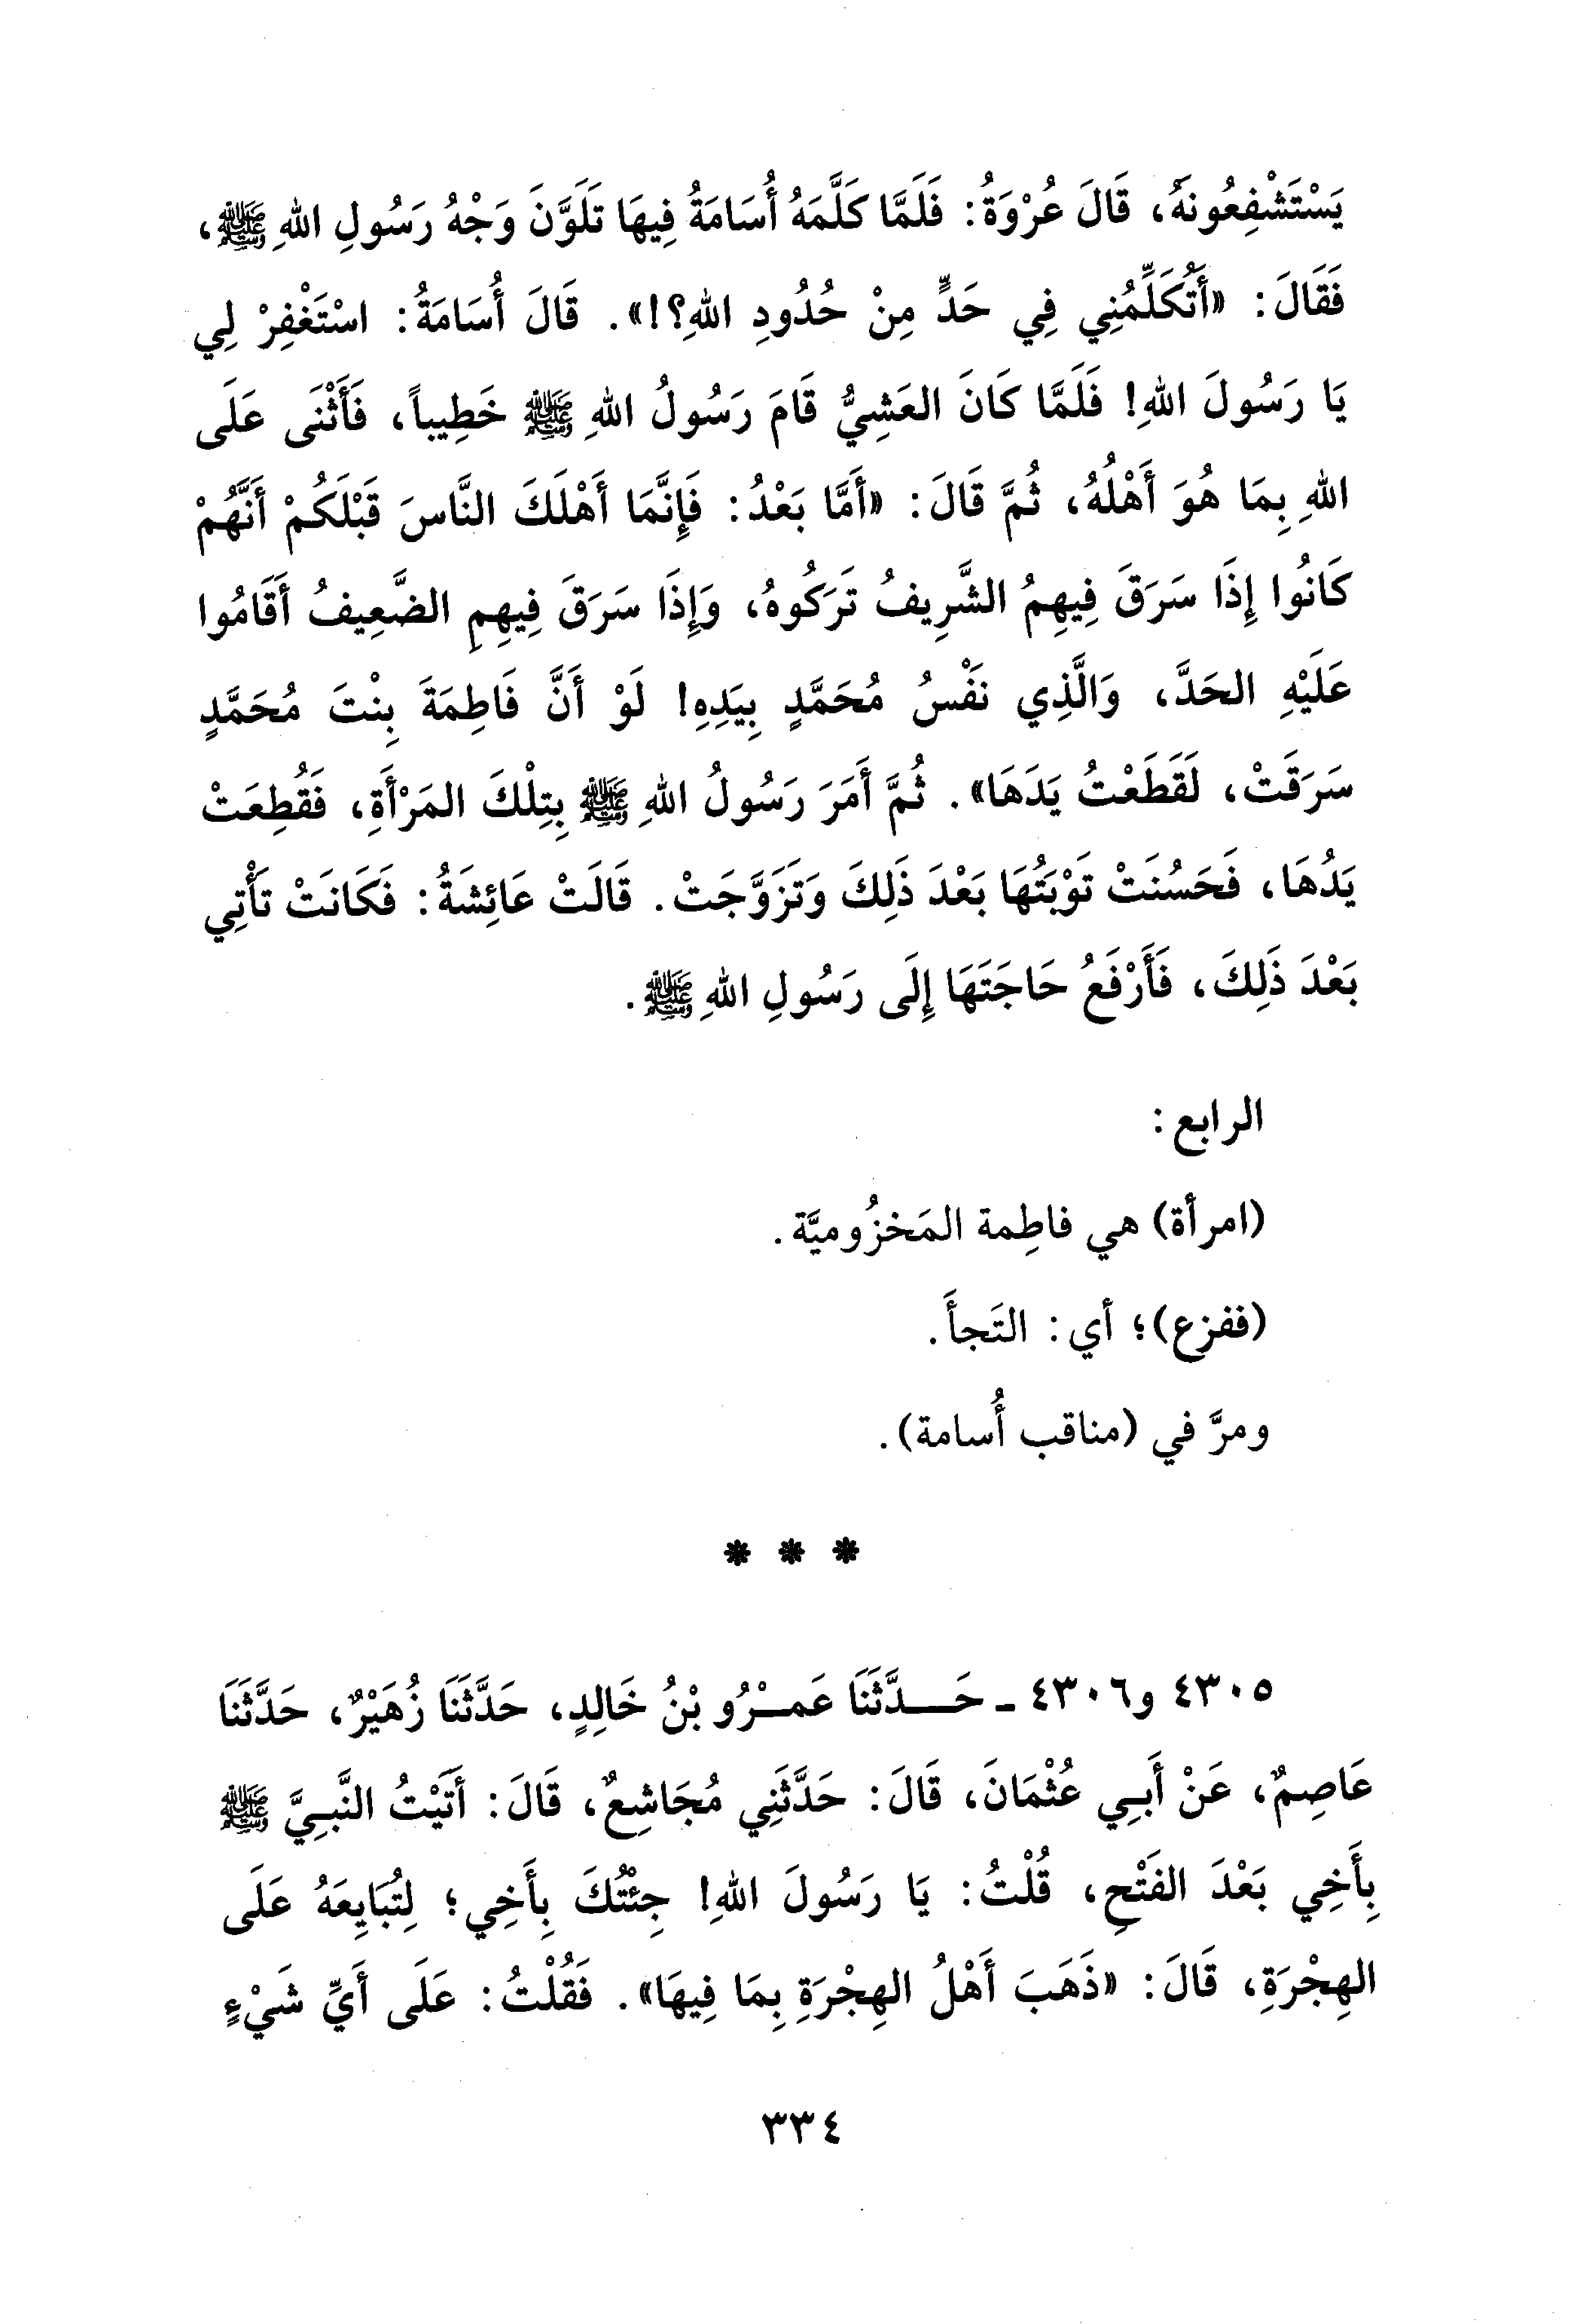 يَسْتَشْفِعُونَهُ، قَالَ عُرْوَةُ: فَلَمَّا كَلَّمَهُ أُسَامَةُ فِيهَا تَلَوَّنَ وَجْهُ رَسُولِ اللهِ ﷺ،
فَقَالَ: «أَتُكَلِّمُنِي فِي حَدٍّ مِنْ حُدُودِ اللهِ؟!». قَالَ أُسَامَةُ: اسْتَغْفِرْ لِي
يَا رَسُولَ اللهِ! فَلَمَّا كَانَ العَشِيُّ قَامَ رَسُولُ اللهِ ﷺ خَطِيباً، فَأَثْنَى عَلَى
اللهِ بِمَا هُوَ أَهْلُهُ، ثُمَّ قَالَ: «أَمَّا بَعْدُ: فَإِنَّمَا أَهْلَكَ النَّاسَ قَبْلَكُمْ أَنَّهُمْ
كَانُوا إِذَا سَرَقَ فِيهِمُ الشَّرِيفُ تَرَكُوهُ، وَإِذَا سَرَقَ فِيهِمِ الضَّعِيفُ أَقَامُوا
عَلَيْهِ الحَدَّ، وَالَّذِي نَفْسُ مُحَمَّدٍ بِيَدِهِ! لَوْ أَنَّ فَاطِمَةَ بِنْتَ مُحَمَّدٍ
سَرَقَتْ، لَقَطَعْتُ يَدَهَا». ثُمَّ أَمَرَ رَسُولُ اللهِ ﷺ بِتِلْكَ المَرْأَةِ، فَقُطِعَتْ
يَدُهَا، فَحَسُنَتْ تَوْبَتُهَا بَعْدَ ذَلِكَ وَتَزَوَّجَتْ. قَالَتْ عَائِشَةُ: فَكَانَتْ تَأْتِي
بَعْدَ ذَلِكَ، فَأَرْفَعُ حَاجَتَهَا إِلَى رَسُولِ اللهِ ﷺ.
الرابع:
(امرأة) هي فاطِمة المَخزُوميَّة.
(ففزع)؛ أي: التَجأَ.
ومرَّ في (مناقب أُسامة).
* * *
٤٣٠٥ و٤٣٠٦ ـ حَـــدَّثَنَا عَمــْرُو بْنُ خَالِدٍ، حَدَّثَنَا زُهَيْرٌ، حَدَّثَنَا
عَاصِمٌ، عَنْ أَبِـي عُثْمَانَ، قَالَ: حَدَّثَنِي مُجَاشِعٌ، قَالَ: أَتَيْتُ النَّبـِيَّ ﷺ
بِأَخِي بَعْدَ الفَتْحِ، قُلْتُ: يَا رَسُولَ اللهِ! جِئْتُكَ بِأَخِي؛ لِتُبَايِعَهُ عَلَى
الهِجْرَةِ، قَالَ: «ذَهَبَ أَهْلُ الهِجْرَةِ بِمَا فِيهَا». فَقُلْتُ: عَلَى أَيِّ شَيْءٍ
٣٣٤